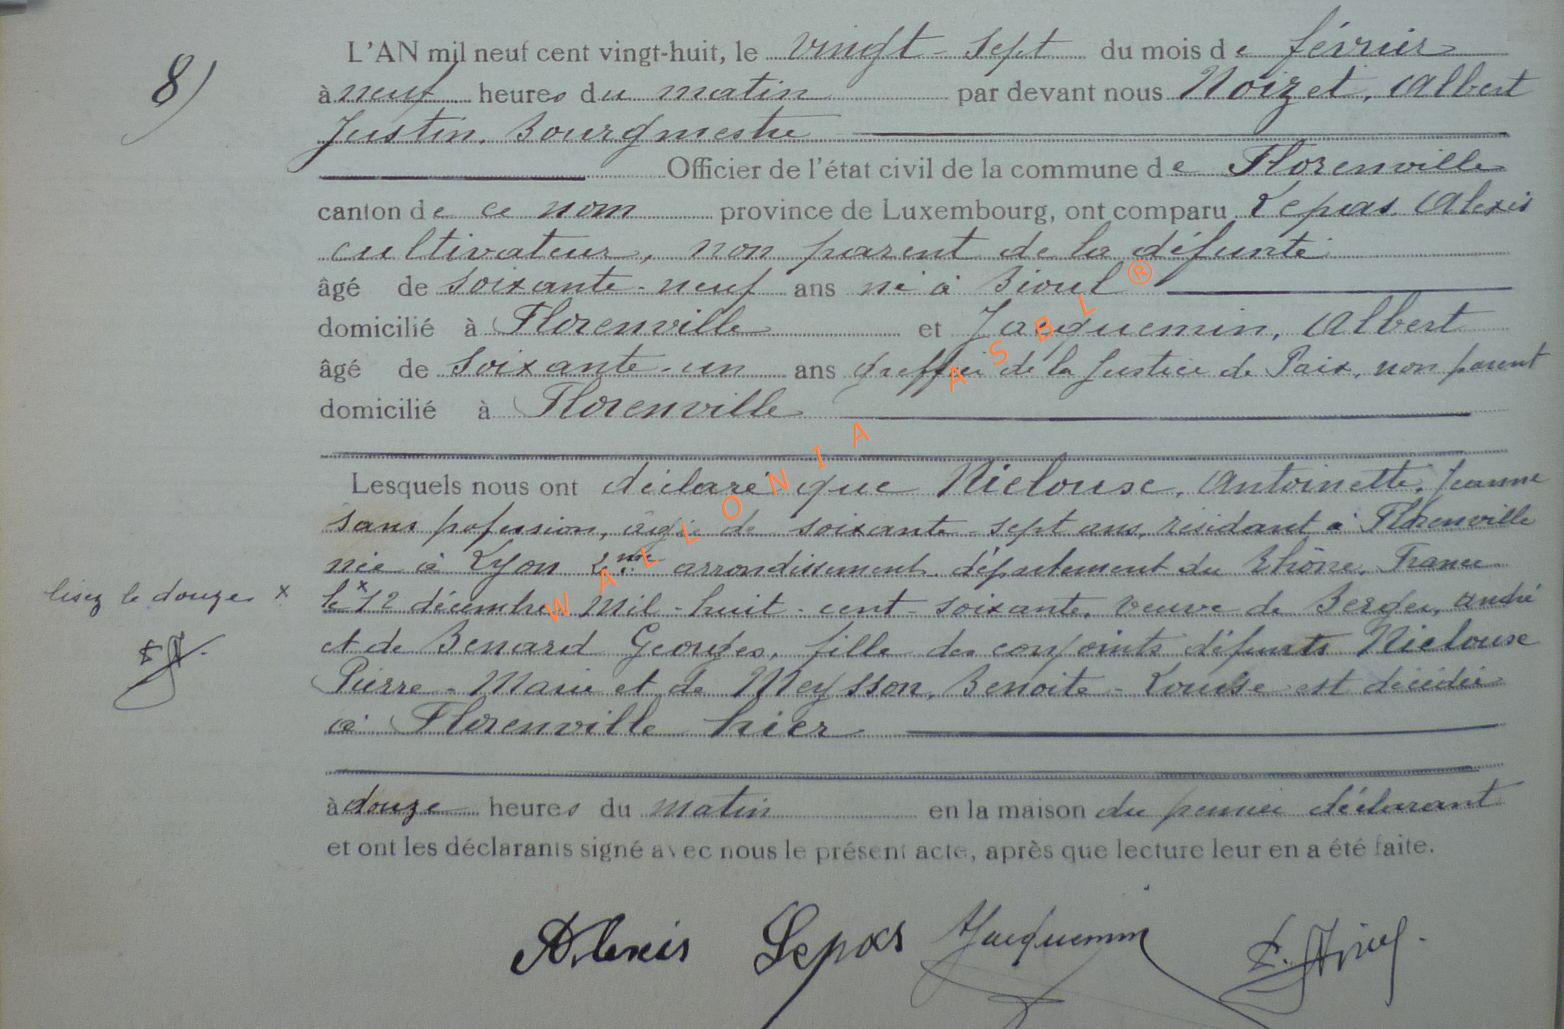 8)
L'AN mil neuf cent vingt-huit, le vingt-sept du mois de février
à neuf heures du matin par devant nous Noizet, Albert
Justin, Bourgmestre
Officier de l'état civil de la commune de Florenville
canton de ce nom province de Luxembourg, ont comparu Lepas, Alexis
cultivateur, non parent de la défunte
âgé de soixante-neuf ans né à Bioul
domicilié à Florenville et Jacquemin, Albert
âgé de soixante-un ans greffier de la Justice de Paix, non parent
domicilié à Florenville
Lesquels nous ont déclaré que Nielouse, Antoinette, Jeanne
sans profession, âgée de soixante-sept ans, résidant à Florenville
née à Lyon 2me arrondissement, département du Rhône, France
lisez le douze x
le x 12 décembre Mil-huit-cent-soixante, veuve de Berger, André
et de Benard Georges, fille des conjoints défunts Nielouse
Pierre-Marie et de Meysson, Benoite-Louise est décédée
à Florenville hier
à douze heures du matin en la maison du premier déclarant
et ont les déclarants signé avec nous le présent acte, après que lecture leur en a été faite.
Alexis Lepas AJacquemin
WALLONIA ASBL ®